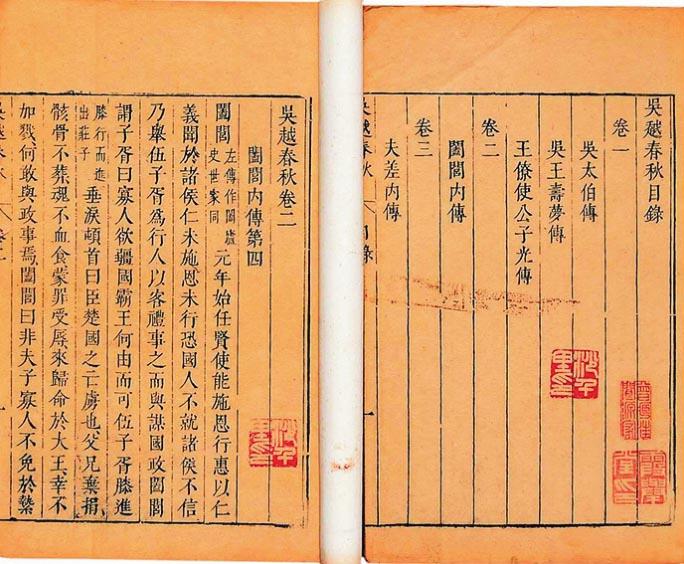 吳越春秋目錄
卷一
吳太伯傳
吳王壽夢傳
王僚使公子光傳
卷二
闔閭內傳
卷三
夫差內傳
吳越春秋
目錄
一
吳越春秋卷二
闔閭內傳第四
闔閭左傳作闔廬史世家同元年始任賢使能施恩行惠以仁
義聞於諸侯仁未施恩未行恐國人不就諸侯不信
乃舉伍子胥為行人以客禮事之而與謀國政闔閭
謂子胥曰寡人欲彊國霸王何由而可伍子胥膝進
膝行而進出莊子垂淚頓首曰臣楚國之亡虜也父兄棄捐
骸骨不葬魂不血食蒙罪受辱來歸命於大王幸不
加戮何敢與政事焉闔閭曰非夫子寡人不免於縶
吳越春秋
卷二
一